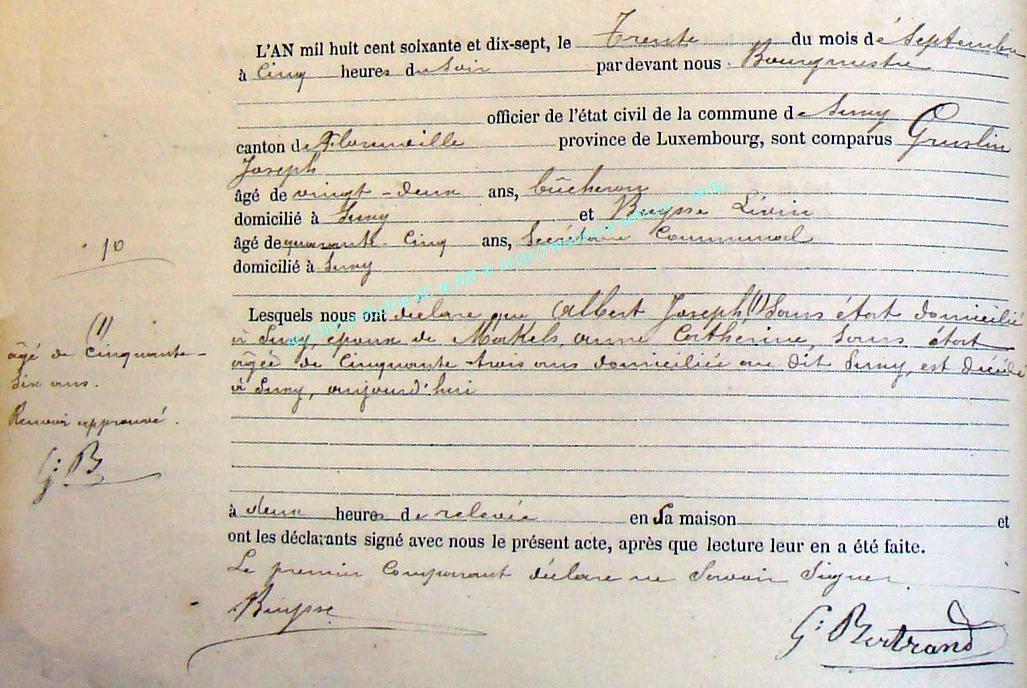 L'AN mil huit cent soixante et dix-sept, le Trente du mois de Septembre
à Cinq heures du Soir par devant nous Bourgmestre
officier de l'état civil de la commune de Sugny
canton de Florenville province de Luxembourg, sont comparus Gruslin
Joseph
âgé de vingt-deux ans, bûcheron
domicilié à Sugny et Buysse Livin
âgé de quarante-Cinq ans, Secrétaire Communal
domicilié à Sugny
10
Lesquels nous ont déclaré que Albert Joseph (1) Sans état domicilié
à Sugny, époux de Anne Cathérine, Sans état
âgée de Cinquante trois ans domiciliée au dit Sugny, est décédé
à Sugny, aujourd'hui
(1)
âgé de Cinquante-
Six ans.
Renvoi approuvé.
G: B
à deux heures de relevée en Sa maison et
ont les déclarants signé avec nous le présent acte, après que lecture leur en a été faite.
Le premier Comparant déclare ne Savoir Signer
Buysse
G: Bertrand